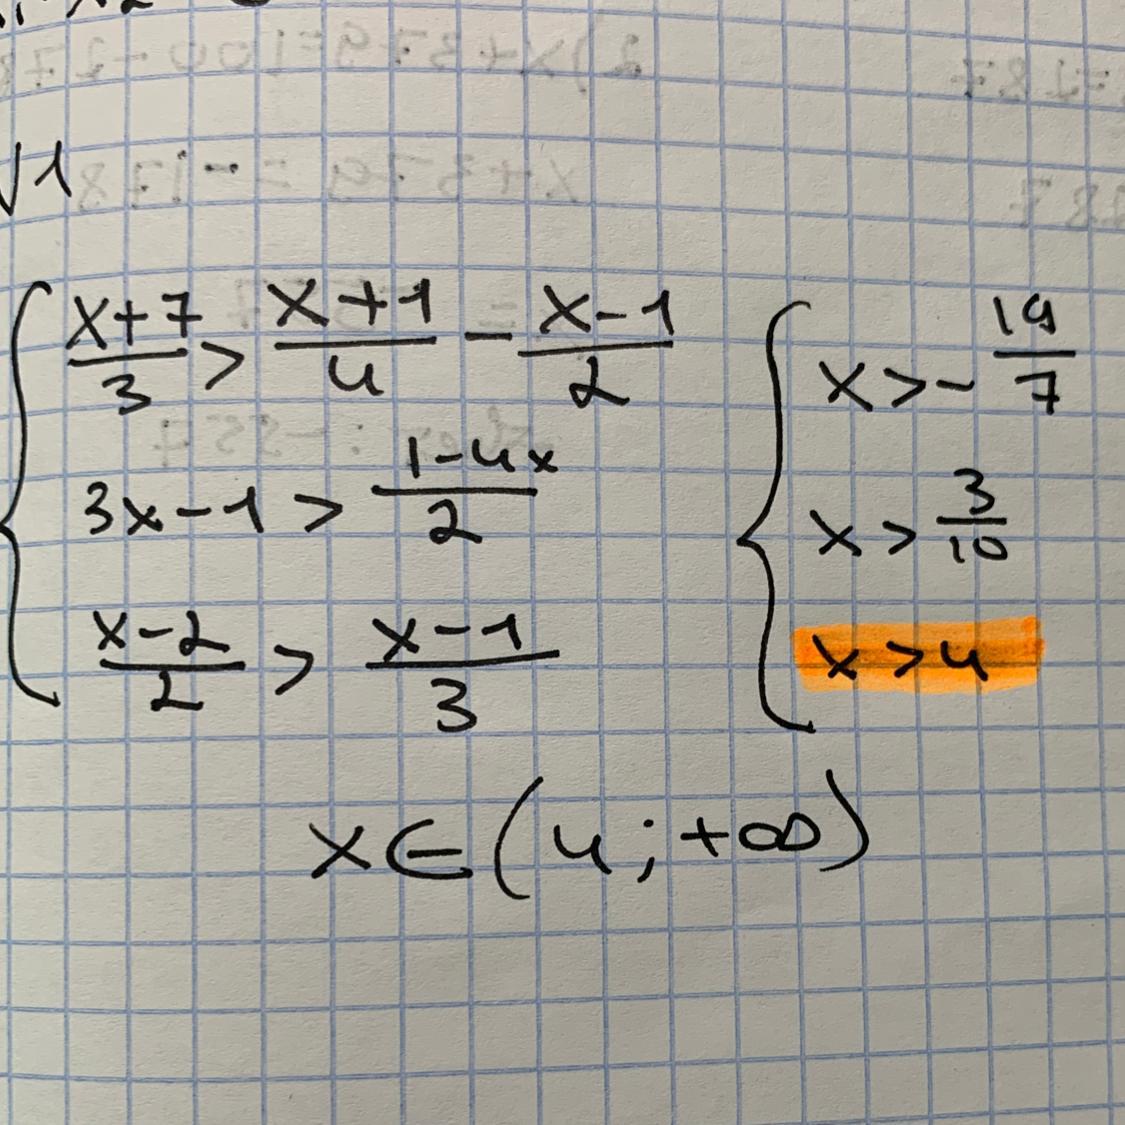 √1
x+7/3 > x+1/4 - x-1/2
3x-1 > 1-4x/2
x-2/2 > x-1/3
x > - 19/7
x > 3/10
x > 4
x ∈ (4; +∞)